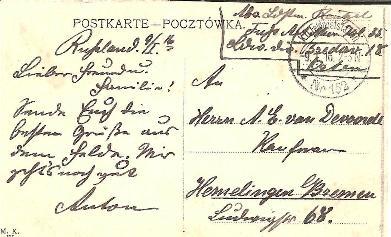 POSTKARTE - POCZTÓWKA
Russland. 9/I. 16
Lieber Freund u.
Familie!
Sende Euch die
besten Grüße aus
dem Felde. Mir
geht's noch gut
Anton
Abs. Ldstm.
18
Polen
No 152
An
Herrn A. E. van Devoorde
Kaufmann
Hemelingen Bremen
Ludwigstr 68.
M. K.